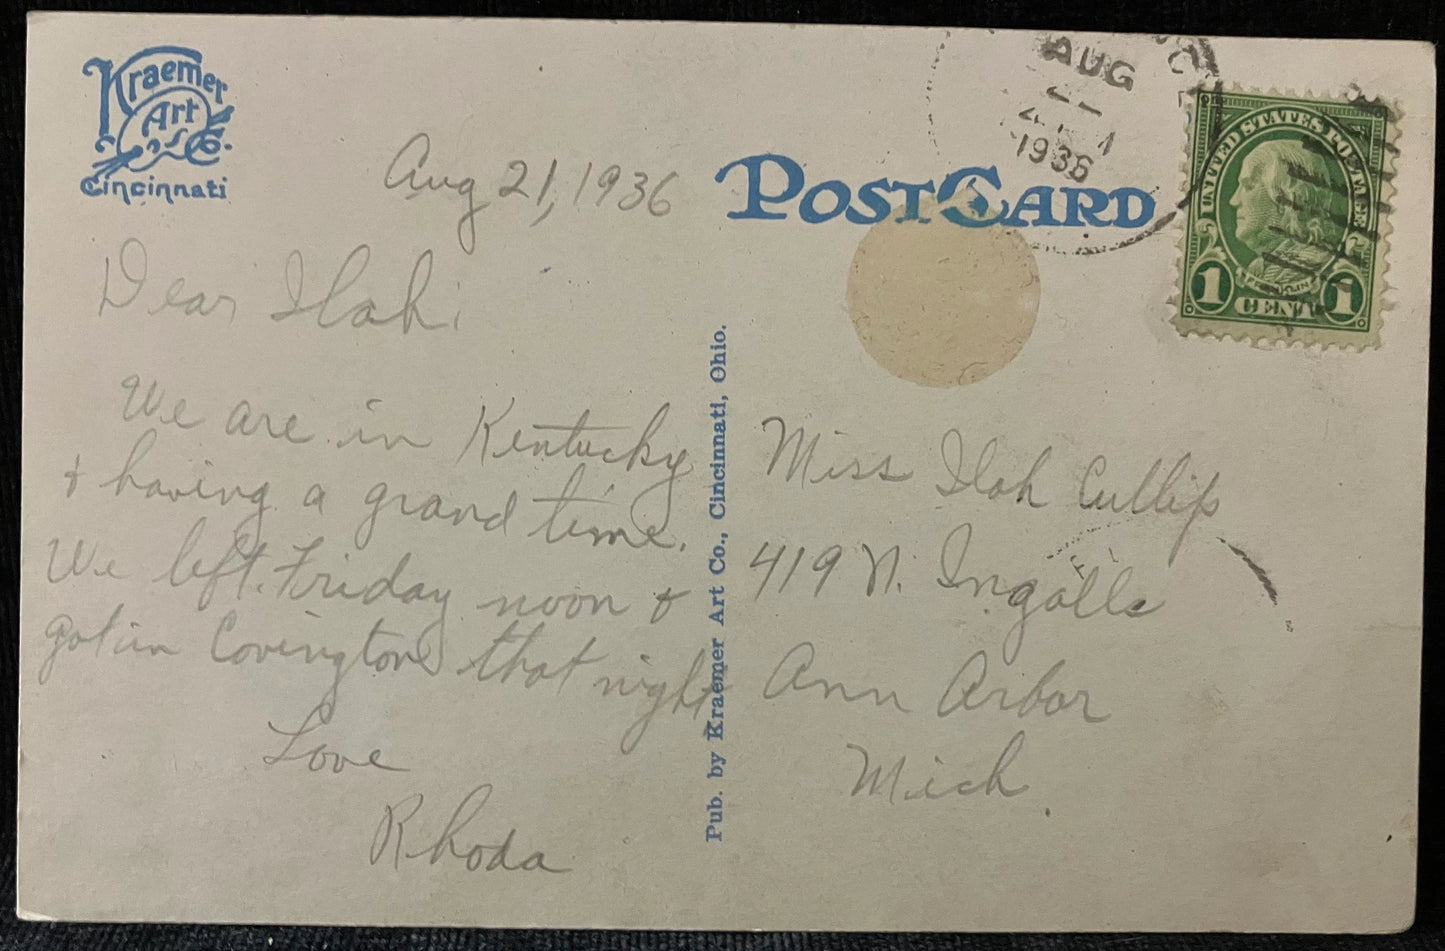 Kraemer
Art
Co.
Cincinnati
Aug 21, 1936
Dear Ilah,
We are in Kentucky
+ having a grand time.
We left Friday noon +
got in Covington that night
Love
Rhoda
POST CARD
Pub. by Kraemer Art Co., Cincinnati, Ohio.
AUG
1936
UNITED STATES POSTAGE
FRANKLIN
1 CENT 1
Miss Ilah Cullip
419 N. Ingalls
Ann Arbor
Mich.